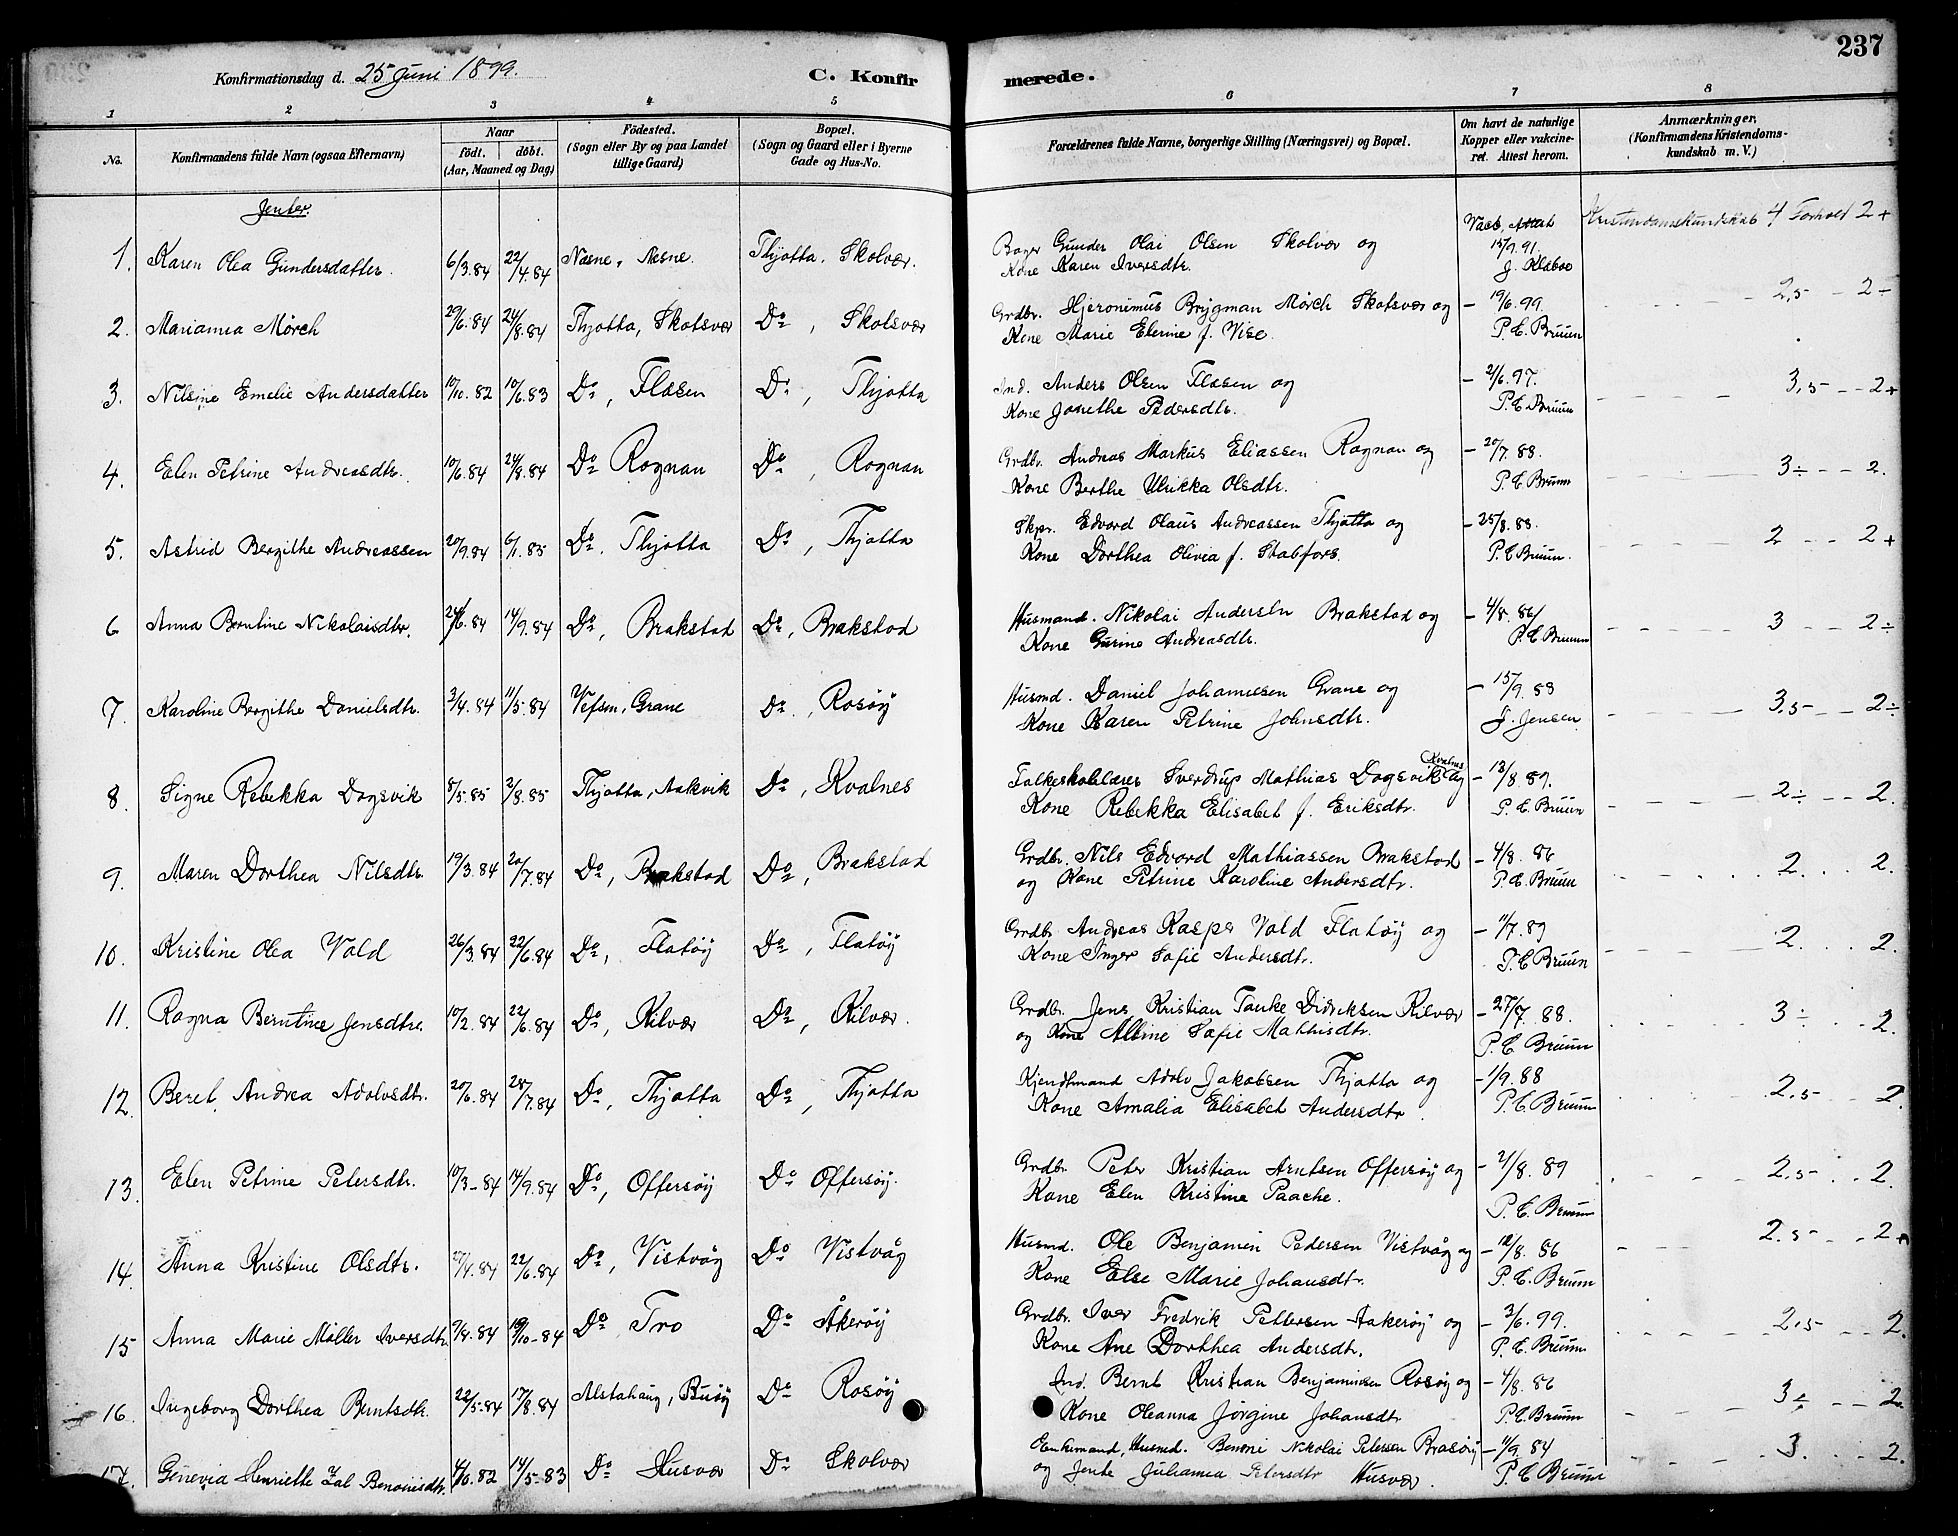 237
Konfirmationsdag d. 25 Juni 1899. C. Konfirmerede.
1 2 3 4 5 6 7 8
No. Konfirmandens fulde Navn (ogsaa Efternavn) Naar født. døbt. (Aar, Maaned og Dag) Fødested. (Sogn eller By og paa Landet tillige Gaard) Bopæl. (Sogn og Gaard eller i Byerne Gade og Hus-No. Forældrenes fulde Navne, borgerlige Stilling (Næringsvei) og Bopæl. Om havt de naturlige Kopper eller vakcineret. Attest herom. Anmærkninger. (Konfirmandens Kristendomskundskab m. V.)
Jenter.
1. Karen Olea Gundersdatter. 6/3.84 22/4.84 Næsne, Næsne. Thjøtta, Skolvær. Bager Gunder Olai Olsen Skolvær og Vacc. Attest 15/9.91. Kristendomskundskab 4 Forhold 2+
Kone Karen Iversdtr. J. Klæboe
2. Marianna Mørch 29/6.84 24/8.84 Thjøtta, Skotsvær Do, Skolsvær Grdbr. Hjeronimus Brygman Mørch Skotsvær og – 19/6.99. 2,5 – 2–
Kone Marie Elerine f. Vise P. C. Bruun
3. Nilsine Emelie Andersdatter 10/10.82 10/6.83 Do, Flæsen Do, Thjøtta Ind. Anders Olsen Flæsen og – 2/6.97. 3,5 – – 2+
Kone Jonethe Pedersdtr. P. C. Bruun
4. Elen Petrine Andreasdtr. 10/6.84 24/8.84 Do Rognan Do, Rognan Grdbr. Andreas Markus Eliassen Rognan og – 20/7.88. 3÷ – – 2.
Kone Berthe Ulrikka Olsdtr. P. C. Bruun
5. Astrid Bergithe Andreassen 20/9.84 6/1.85 Do. Thjøtta Do, Thjøtta Skpr. Edvard Olaus Andreassen Thjøtta og – 25/8.88. 2 – – 2+
Kone Dorthea Olivea f. Stabfors. P. C Bruun.
6 Anna Berntine Nikolaisdtr. 24/6.84 14/9.84 Do, Brakstad Do, Brakstad Husmand. Nikolai Andersen Brakstad og – 4/8.86 3 – 2÷
Kone Gurine Andreasdtr. P. C Bruun
7. Karoline Bergithe Danielsdtr. 3/4.84 11/5.84 Vefsen, Grane Do, Rosøy Husmd. Daniel Johannessen Grane og – 15/9.88 3,5 – – 2÷
Kone Karen Petrine Johnsdtr. J. Jensen
8. Signe Rebekka Dagsvik 8/5.85 2/8.85 Thjøtta, Aakvik Do, Kvalnes Folkeskolelærer Sverdrup Mathias Dagsvik Kvalnes og – 13/8.89. 2÷ – – 2.
Kone Rebekka Elisabet f. Eriksdtr. P. C. Bruun
9. Maren Dorthea Nilsdtr. 19/3.84 20/7.84 Do, Brakstad Do, Brakstad Grdbr. Nils Edvard Mathiassen Brakstad – 4/8.86 2. . . 2.
og Kone Petrine Karoline Andersdtr. P. C. Bruun
10. Kristine Olea Vold 26/3.84 22/6.84 Do, Flatøy Do, Flatøy Grdbr. Andreas Kasper Vold Flatøy og – 11/7.89 2. . . 2.
Kone Inger Sofie Andersdtr. P. C Bruun
11. Ragna Berntine Jensdtr. 10/2.84 22/6.84 Do, Kilvær Do, Kilvær. Grdbr. Jens Kristian Tanke Didriksen Kilvær – 27/7.88. 3÷ . . 2.
og Kone Albine Sofie Mathisdtr. P. C Bruun
12. Beret Andrea Adolvsdtr. 20/6.84 28/7.84 Do, Thjøtta Do, Thjøtta Kjendtmand Adolv Jakobsen Thjøtta og – 1/9.88 2,5 – . 2.
Kone Amalia Elisabet Andersdtr P. C Bruun
13. Elen Petrine Petersdtr. 10/3–84 14/9.84 Do, Offersøy Do Offersøy. Grdbr. Peter Kristian Arntsen Offersøy og – 2/8.89 2,5 . . 2.
Kone Elen Kristine Paache. P. C. Bruun
14. Anna Kristine Olsdtr. 27/4.84 22/6.84 Do, Vistvåg Do Vistvåg Husmd. Ole Benjamin Pedersen Vistvåg og – 12/8.86 2.5 – – 2+
Kone Else Marie Johansdtr. P. C. Bruun
15 Anna Marie Møller Iversdtr. 9/8.84 19/10–84 Do Tro Do Åkerøy Grdbr. Iver Fredrik Pettersen Aakerøy og – 3/6.99. 2,5 – – 2.
Kone Ane Dorthea Andersdtr. P. C. Bruun
16. Ingeborg Dorthea Berntsdtr. 22/5.84 17/8.84 Alstahaug, Buøy Do Rosøy Ind. Bernt Kristian Benjaminsen Rosøy og – 4/8.86 3÷ – – 2.
Kone Oleanna Jørgine Johansdtr P. C. Bruun
17. Genevia Henriette Zal Benonisdtr. 4/10.82 14/5–83 Do Husvær Do Skolvær Enkemand, Husmd. Benoni Nikolai Petersen Brasøy – 11/9.84 3. – – 2.
og Jente Juliannea Petersdtr Husvær. P. C Bruun